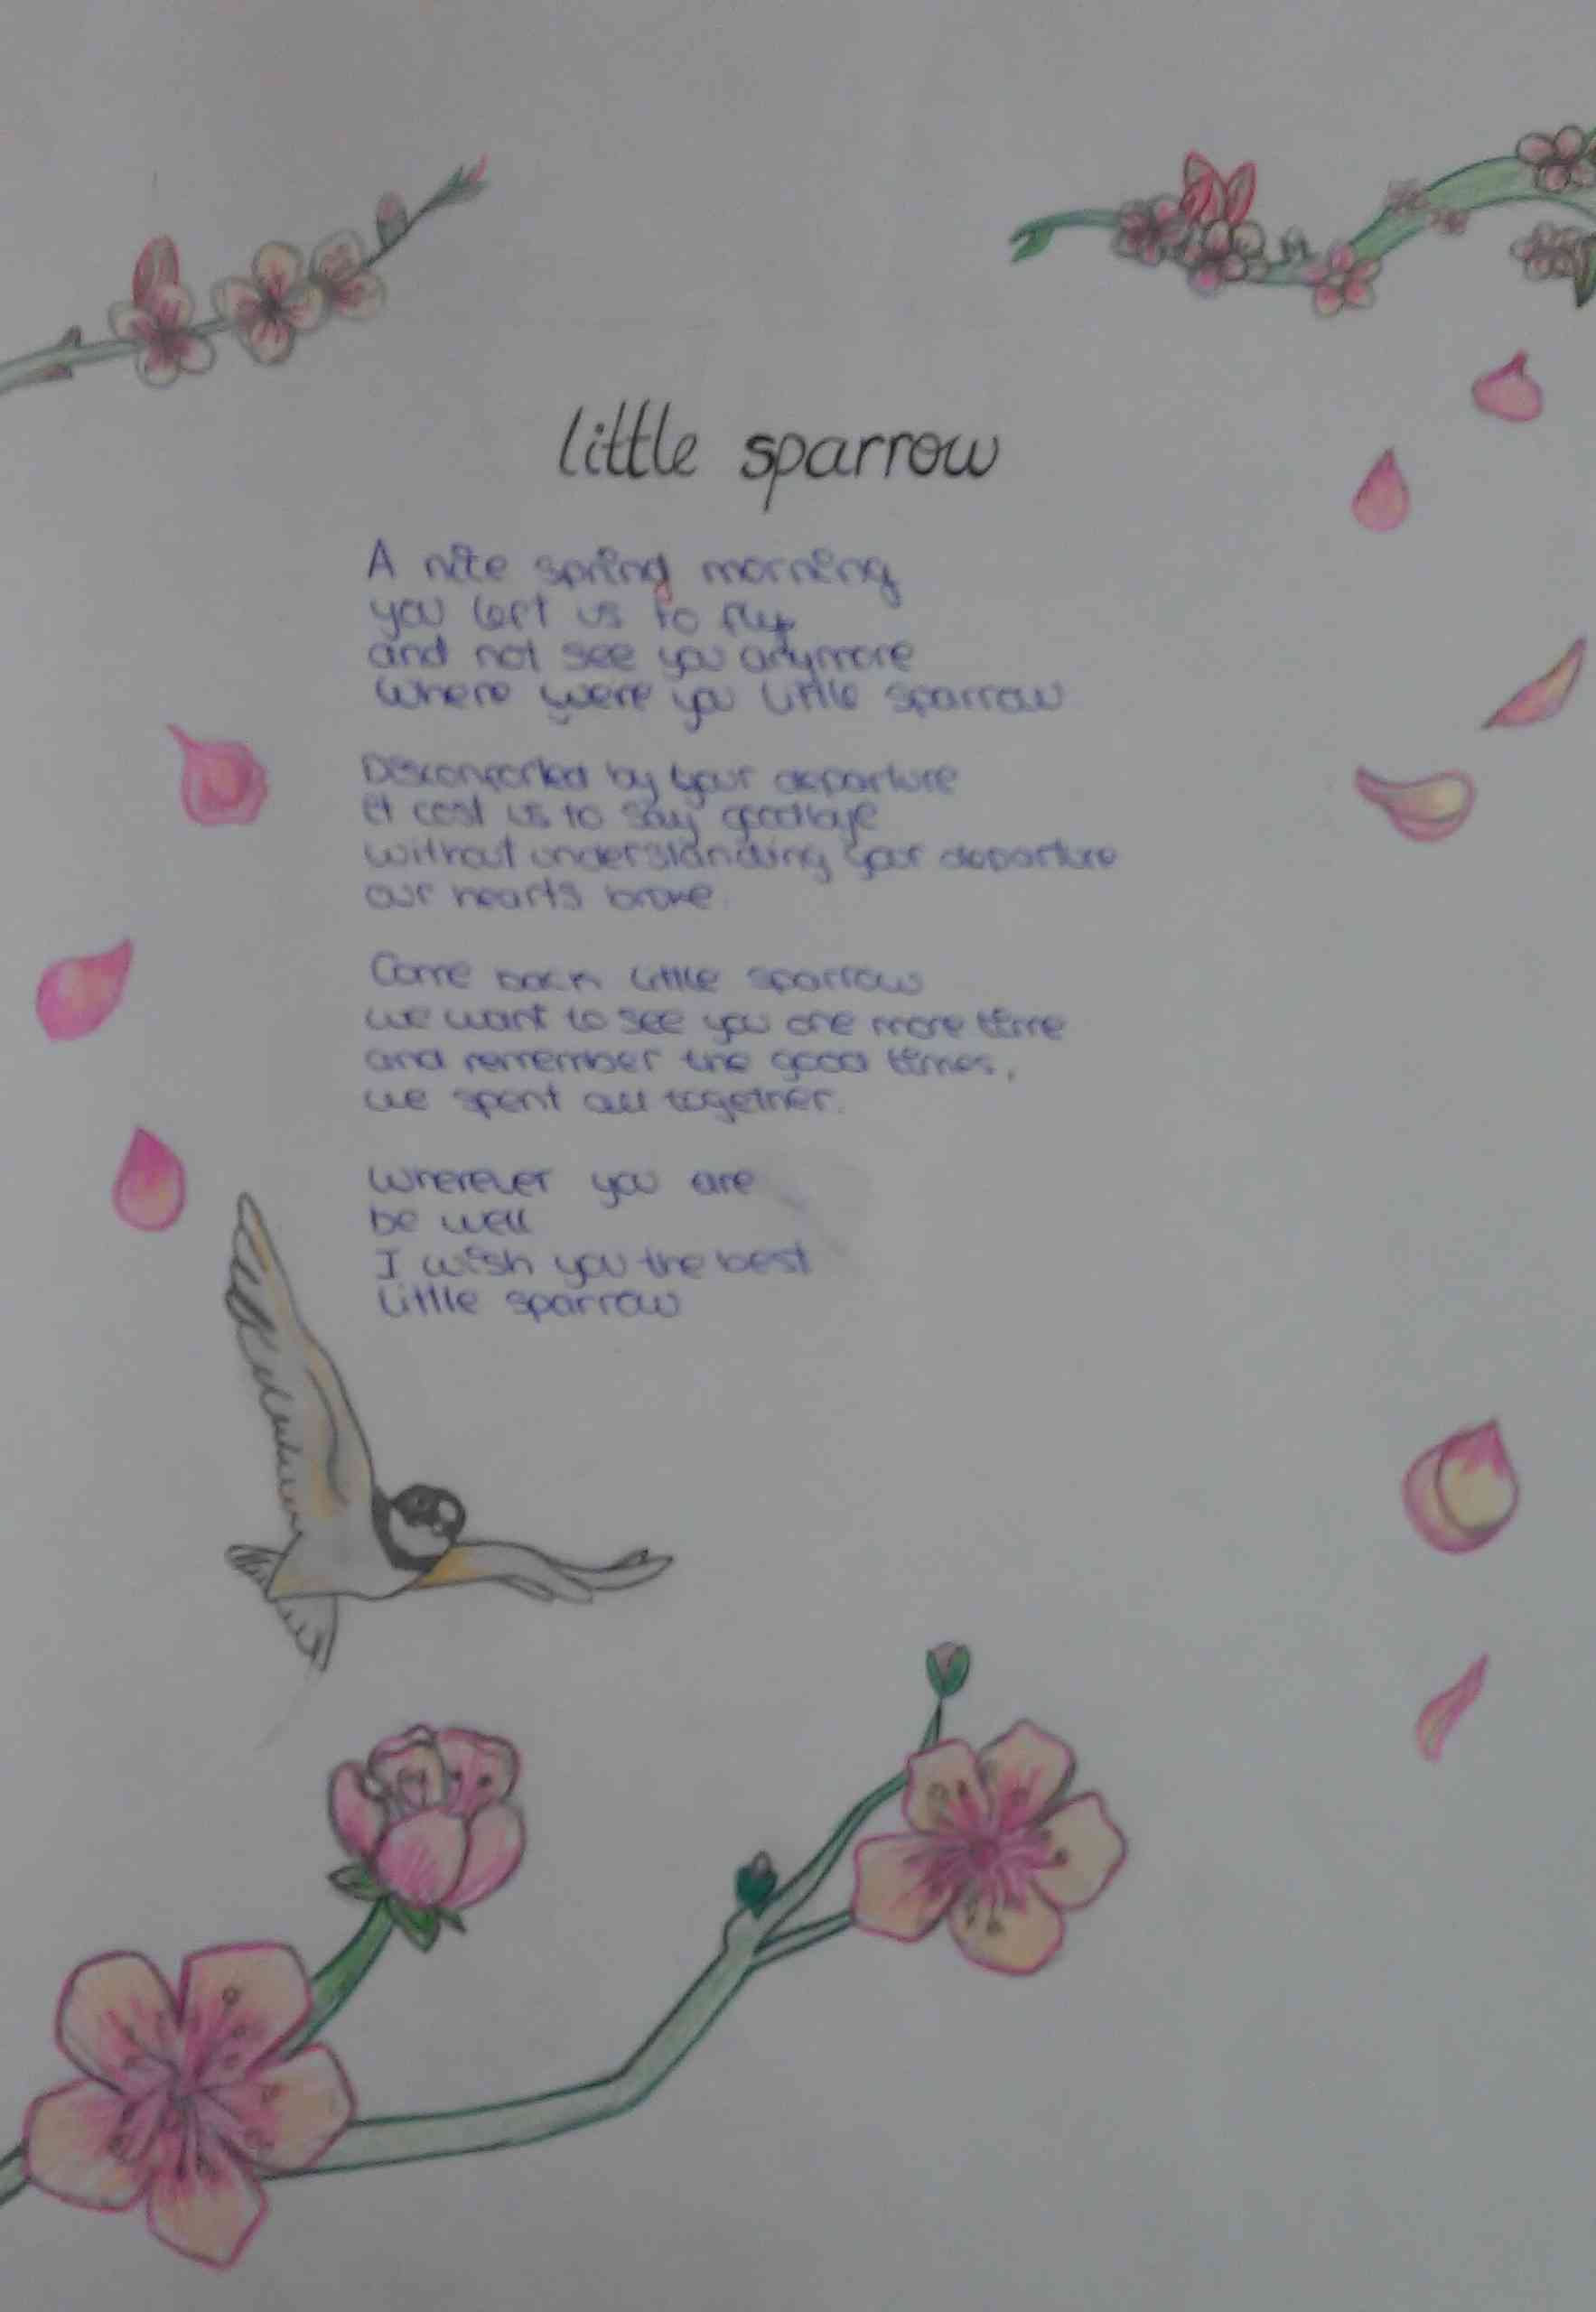 little sparrow
A nice spring morning
you left us to fly
and not see you anymore
Where were you little sparrow
Disconforted by your departure
it cost us to say goodbye
without understanding your departure
our hearts broke.
Come back little sparrow
we want to see you one more time
and remember the good times,
we spent all together.
Wherever you are
be well
I wish you the best
Little sparrow